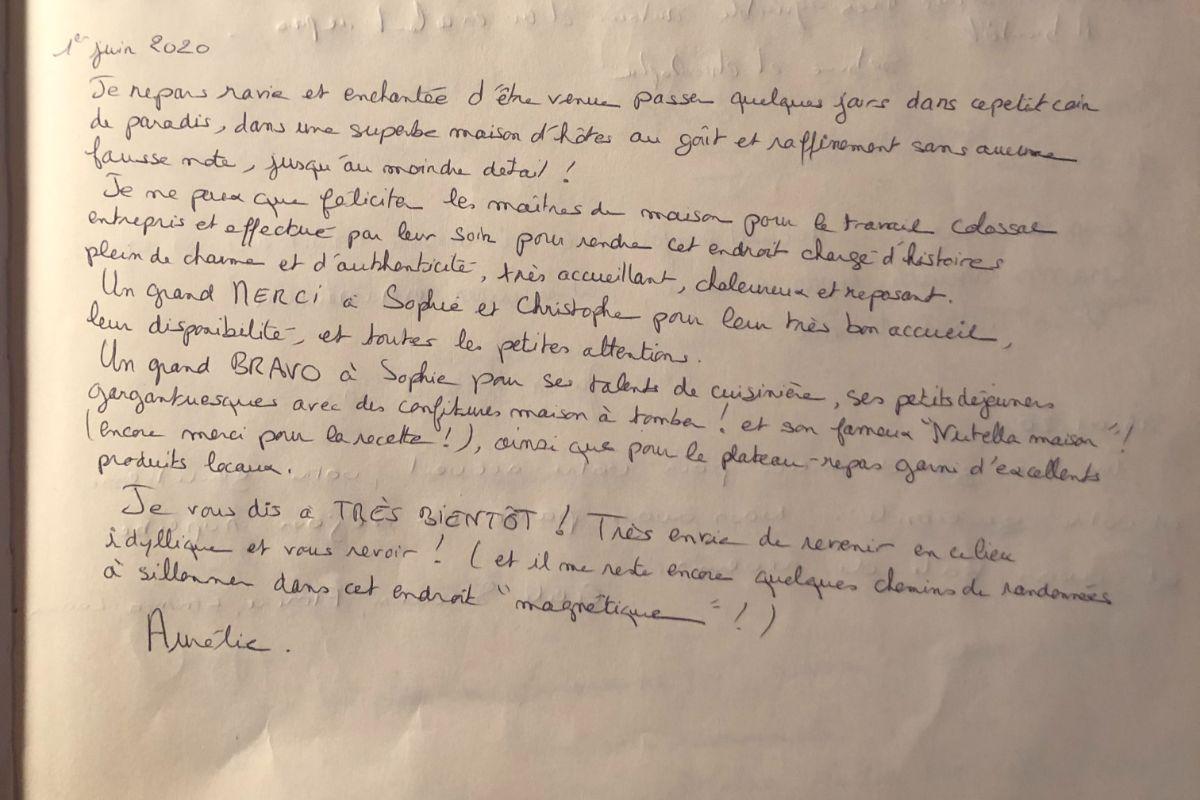 1er juin 2020
Je repars ravie et enchantée d'être venue passer quelques jours dans ce petit coin
de paradis, dans une superbe maison d'hôtes au goût et raffinement sans aucune
fausse note, jusqu'au moindre détail !
Je ne peux que féliciter les maîtres de maison pour le travail colossal
entrepris et effectué par leur soin pour rendre cet endroit chargé d'histoires
plein de charme et d'authenticité, très accueillant, chaleureux et reposant.
Un grand MERCI à Sophie et Christophe pour leur très bon accueil,
leur disponibilité, et toutes les petites attentions.
Un grand BRAVO à Sophie pour ses talents de cuisinière, ses petits déjeuners
gargantuesques avec des confitures maison à tomber ! et son fameux "Nutella maison" !
(encore merci pour la recette !), ainsi que pour le plateau-repas garni d'excellents
produits locaux.
Je vous dis à TRÈS BIENTÔT ! Très envie de revenir en ce lieu
idyllique et vous revoir ! (et il me reste encore quelques chemins de randonnées
à sillonner dans cet endroit "magnétique" !)
Aurélie.